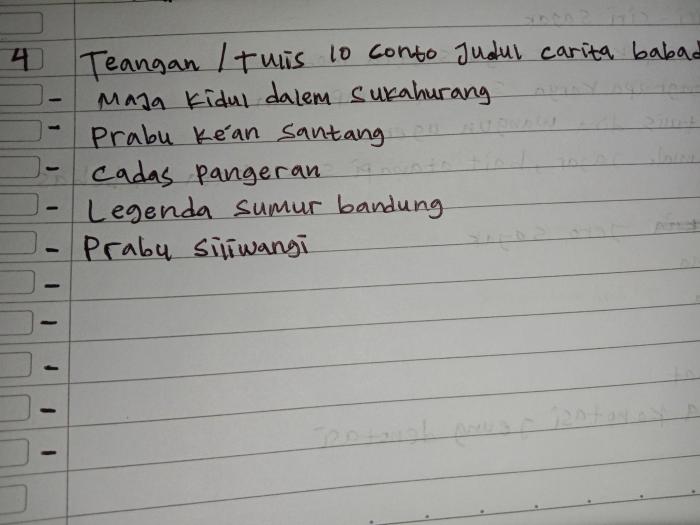 4 Teangan / tulis 10 conto Judul carita babad
- Maja Kidul dalem Sukahurang
- Prabu Kéan Santang
- Cadas Pangeran
- Legenda Sumur bandung
- Prabu Siliwangi
-
-
-
-
-